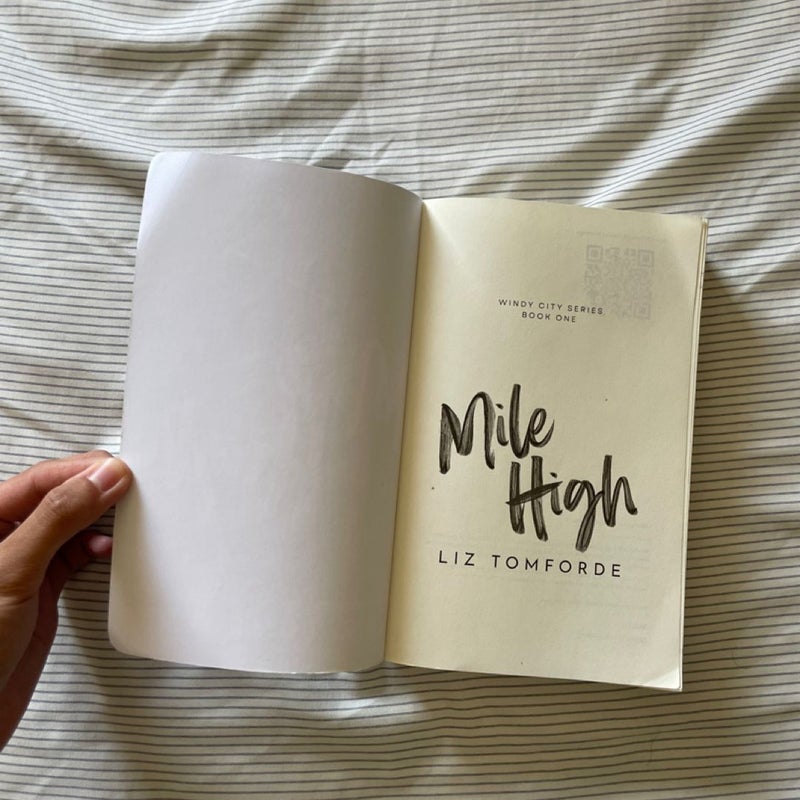 WINDY CITY SERIES
BOOK ONE
Mile
High
LIZ TOMFORDE